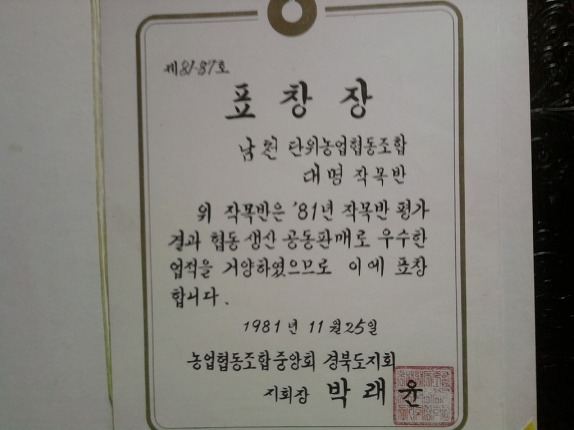 제81-87호
표창장
남천 단위농업협동조합
대명 작목반
위 작목반은 '81년 작목반 평가
결과 협동 생산 공동판매로 우수한
업적을 거양하였으므로 이에 표창
합니다.
1981년 11월 25일
농업협동조합중앙회 경북도지회
지회장 박래윤